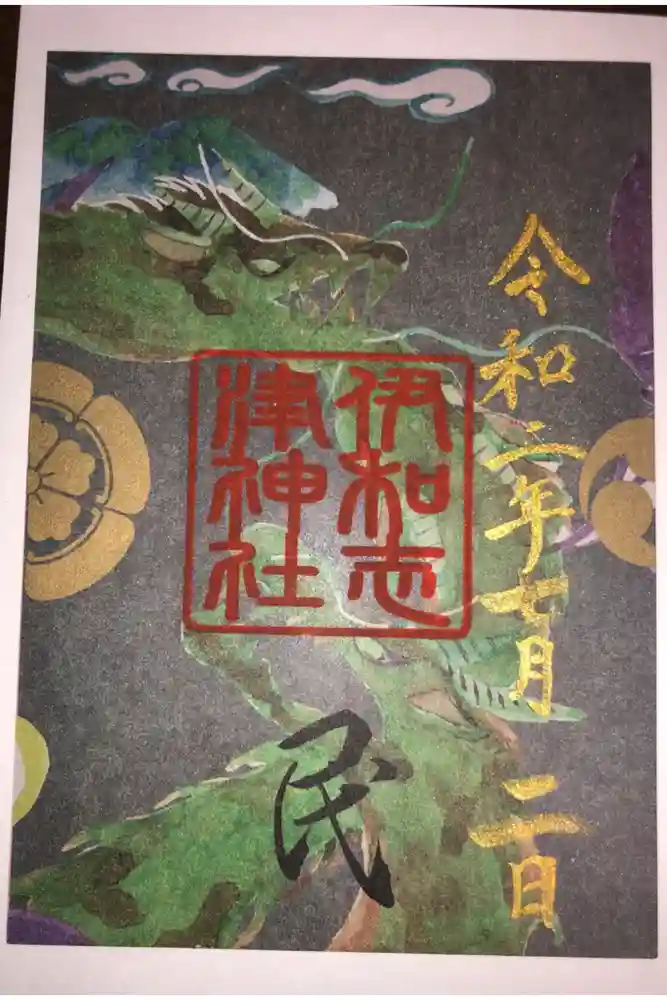 令和二年七月二日
伊和志
津神社
民